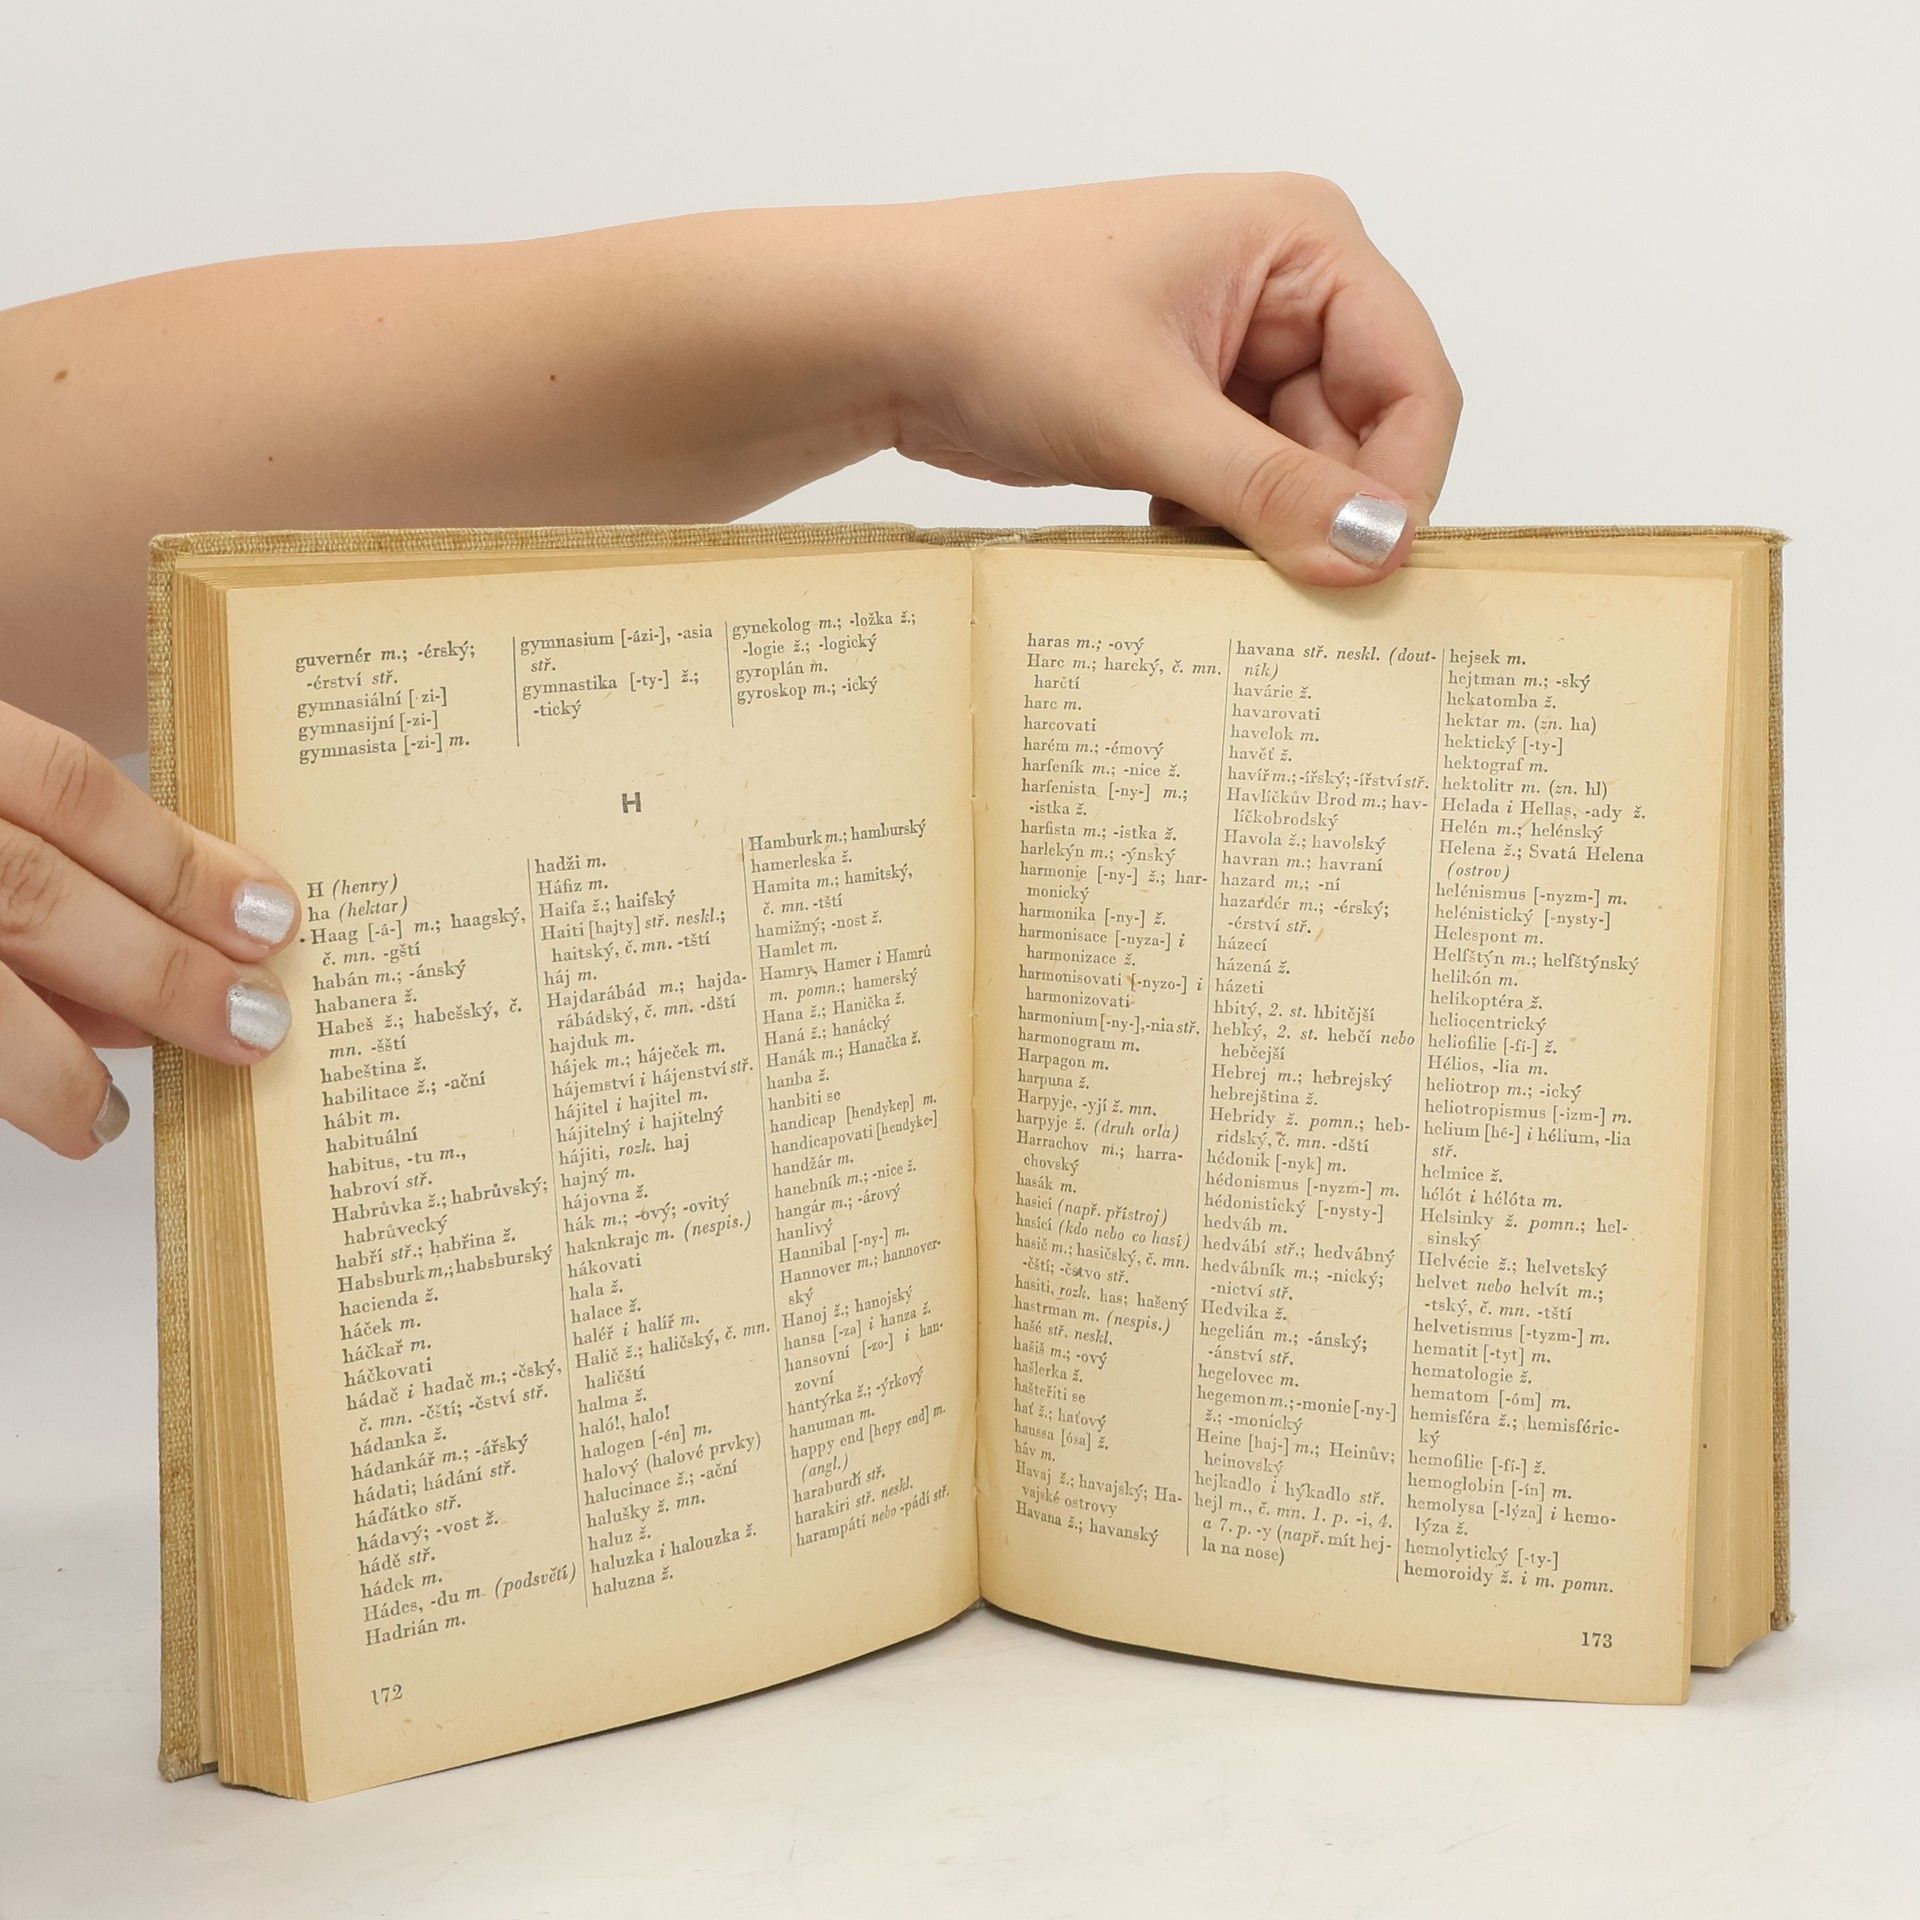 guvernér m.; -érský;
-érství stř.
gymnasiální [-zi-]
gymnasijní [-zi-]
gymnasista [-zi-] m.
gymnasium [-ázi-], -asia
stř.
gymnastika [-ty-] ž.;
-tický
gynekolog m.; -ložka ž.;
-logie ž.; -logický
gyroplán m.
gyroskop m.; -ický
H
H (henry)
ha (hektar)
Haag [-á-] m.; haagský,
č. mn. -gští
habán m.; -ánský
habanera ž.
Habeš ž.; habešský, č.
mn. -šští
habeština ž.
habilitace ž.; -ační
hábit m.
habituální
habitus, -tu m.,
habroví stř.
Habrůvka ž.; habrůvský;
habrůvecký
habří stř.; habřina ž.
Habsburk m.; habsburský
hacienda ž.
háček m.
háčkař m.
háčkovati
hádač i hadač m.; -čský,
č. mn. -čští; -čství stř.
hádanka ž.
hádankář m.; -ářský
hádati; hádání stř.
háďátko stř.
hádavý; -vost ž.
hádě stř.
hádek m.
Hádes, -du m. (podsvětí)
Hadrián m.
hadži m.
Háfiz m.
Haifa ž.; haifský
Haiti [hajty] stř. neskl.;
haitský, č. mn. -tští
háj m.
Hajdarábád m.; hajda-
rábádský, č. mn. -dští
hajduk m.
hájek m.; háječek m.
hájemství i hájenství stř.
hájitel i hajitel m.
hájitelný i hajitelný
hájiti, rozk. haj
hajný m.
hájovna ž.
hák m.; -ový; -ovitý
haknkrajc m. (nespis.)
hákovati
hala ž.
halace ž.
haléř i halíř m.
Halič ž.; haličský, č. mn.
haličští
halma ž.
haló!, halo!
halogen [-én] m.
halový (halové prvky)
halucinace ž.; -ační
halušky ž. mn.
haluz ž.
haluzka i halouzka ž.
haluzna ž.
Hamburk m.; hamburský
hamerleska ž.
Hamita m.; hamitský,
č. mn. -tští
hamižný; -nost ž.
Hamlet m.
Hamry, Hamer i Hamrů
m. pomn.; hamerský
Hana ž.; Hanička ž.
Haná ž.; hanácký
Hanák m.; Hanačka ž.
hanba ž.
hanbiti se
handicap [hendykep] m.
handicapovati [hendyke-]
handžár m.
hanebník m.; -nice ž.
hangár m.; -árový
hanlivý
Hannibal [-ny-] m.
Hannover m.; hannover-
ský
Hanoj ž.; hanojský
hansa [-za] i hanza ž.
hansovní [-zo-] i han-
zovní
hantýrka ž.; -ýrkový
hanuman m.
happy end [hepy end] m.
(angl.)
haraburdí stř.
harakiri stř. neskl.
harampátí nebo -pádí stř.
172
haras m.; -ový
Harc m.; harcký, č. mn.
harčtí
harc m.
harcovati
harém m.; -émový
harfeník m.; -nice ž.
harfenista [-ny-] m.;
-istka ž.
harfista m.; -istka ž.
harlekýn m.; -ýnský
harmonie [-ny-] ž.; har-
monický
harmonika [-ny-] ž.
harmonisace [-nyza-] i
harmonizace ž.
harmonisovati [-nyzo-] i
harmonizovati
harmonium [-ny-], -nia stř.
harmonogram m.
Harpagon m.
harpuna ž.
Harpyje, -yjí ž. mn.
harpyje ž. (druh orla)
Harrachov m.; harra-
chovský
hasák m.
hasicí (např. přístroj)
hasící (kdo nebo co hasí)
hasič m.; hasičský, č. mn.
-čští; -čstvo stř.
hasiti, rozk. has; hašený
hastrman m. (nespis.)
hašé stř. neskl.
hašiš m.; -ový
hašlerka ž.
hašteřiti se
hať ž.; haťový
haussa [ósa] ž.
háv m.
Havaj ž.; havajský; Ha-
vajské ostrovy
Havana ž.; havanský
havana stř. neskl. (dout-
ník)
havárie ž.
havarovati
havelok m.
havěť ž.
havíř m.; -ířský; -ířství stř.
Havlíčkův Brod m.; hav-
líčkobrodský
Havola ž.; havolský
havran m.; havraní
hazard m.; -ní
hazardér m.; -érský;
-érství stř.
házecí
házená ž.
házeti
hbitý, 2. st. hbitější
hebký, 2. st. hebčí nebo
hebčejší
Hebrej m.; hebrejský
hebrejština ž.
Hebridy ž. pomn.; heb-
ridský, č. mn. -dští
hédonik [-nyk] m.
hédonismus [-nyzm-] m.
hédonistický [-nysty-]
hedváb m.
hedvábí stř.; hedvábný
hedvábník m.; -nický;
-nictví stř.
Hedvika ž.
hegelián m.; -ánský;
-ánství stř.
hegelovec m.
hegemon m.; -monie [-ny-]
ž.; -monický
Heine [haj-] m.; Heinův;
heinovský
hejkadlo i hýkadlo stř.
hejl m., č. mn. 1. p. -i, 4.
a 7. p. -y (např. mít hej-
la na nose)
hejsek m.
hejtman m.; -ský
hekatomba ž.
hektar m. (zn. ha)
hektický [-ty-]
hektograf m.
hektolitr m. (zn. hl)
Helada i Hellas, -ady ž.
Helén m.; helénský
Helena ž.; Svatá Helena
(ostrov)
helénismus [-nyzm-] m.
helénistický [-nysty-]
Helespont m.
Helfštýn m.; helfštýnský
helikón m.
helikoptéra ž.
heliocentrický
heliofilie [-fí-] ž.
Hélios, -lia m.
heliotrop m.; -ický
heliotropismus [-izm-] m.
helium [hé-] i hélium, -lia
stř.
helmice ž.
hélót i hélóta m.
Helsinky ž. pomn.; hel-
sinský
Helvécie ž.; helvetský
helvet nebo helvít m.;
-tský, č. mn. -tští
helvetismus [-tyzm-] m.
hematit [-tyt] m.
hematologie ž.
hematom [-óm] m.
hemisféra ž.; hemisféric-
ký
hemofilie [-fí-] ž.
hemoglobin [-ín] m.
hemolysa [-lýza] i hemo-
lýza ž.
hemolytický [-ty-]
hemoroidy ž. i m. pomn.
173